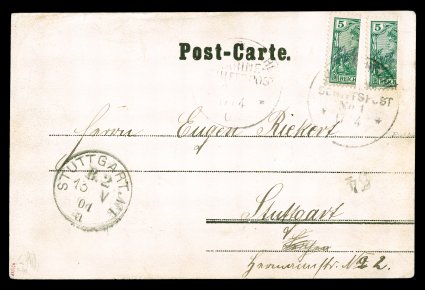 5 5
Post-Carte.
MARINE-
SCHIFFSPOST
No 1
4
Herrn Eugen Rickert
STUTTGART
B.2
15
V
01
Stuttgart
Herrmannstr. No 2.